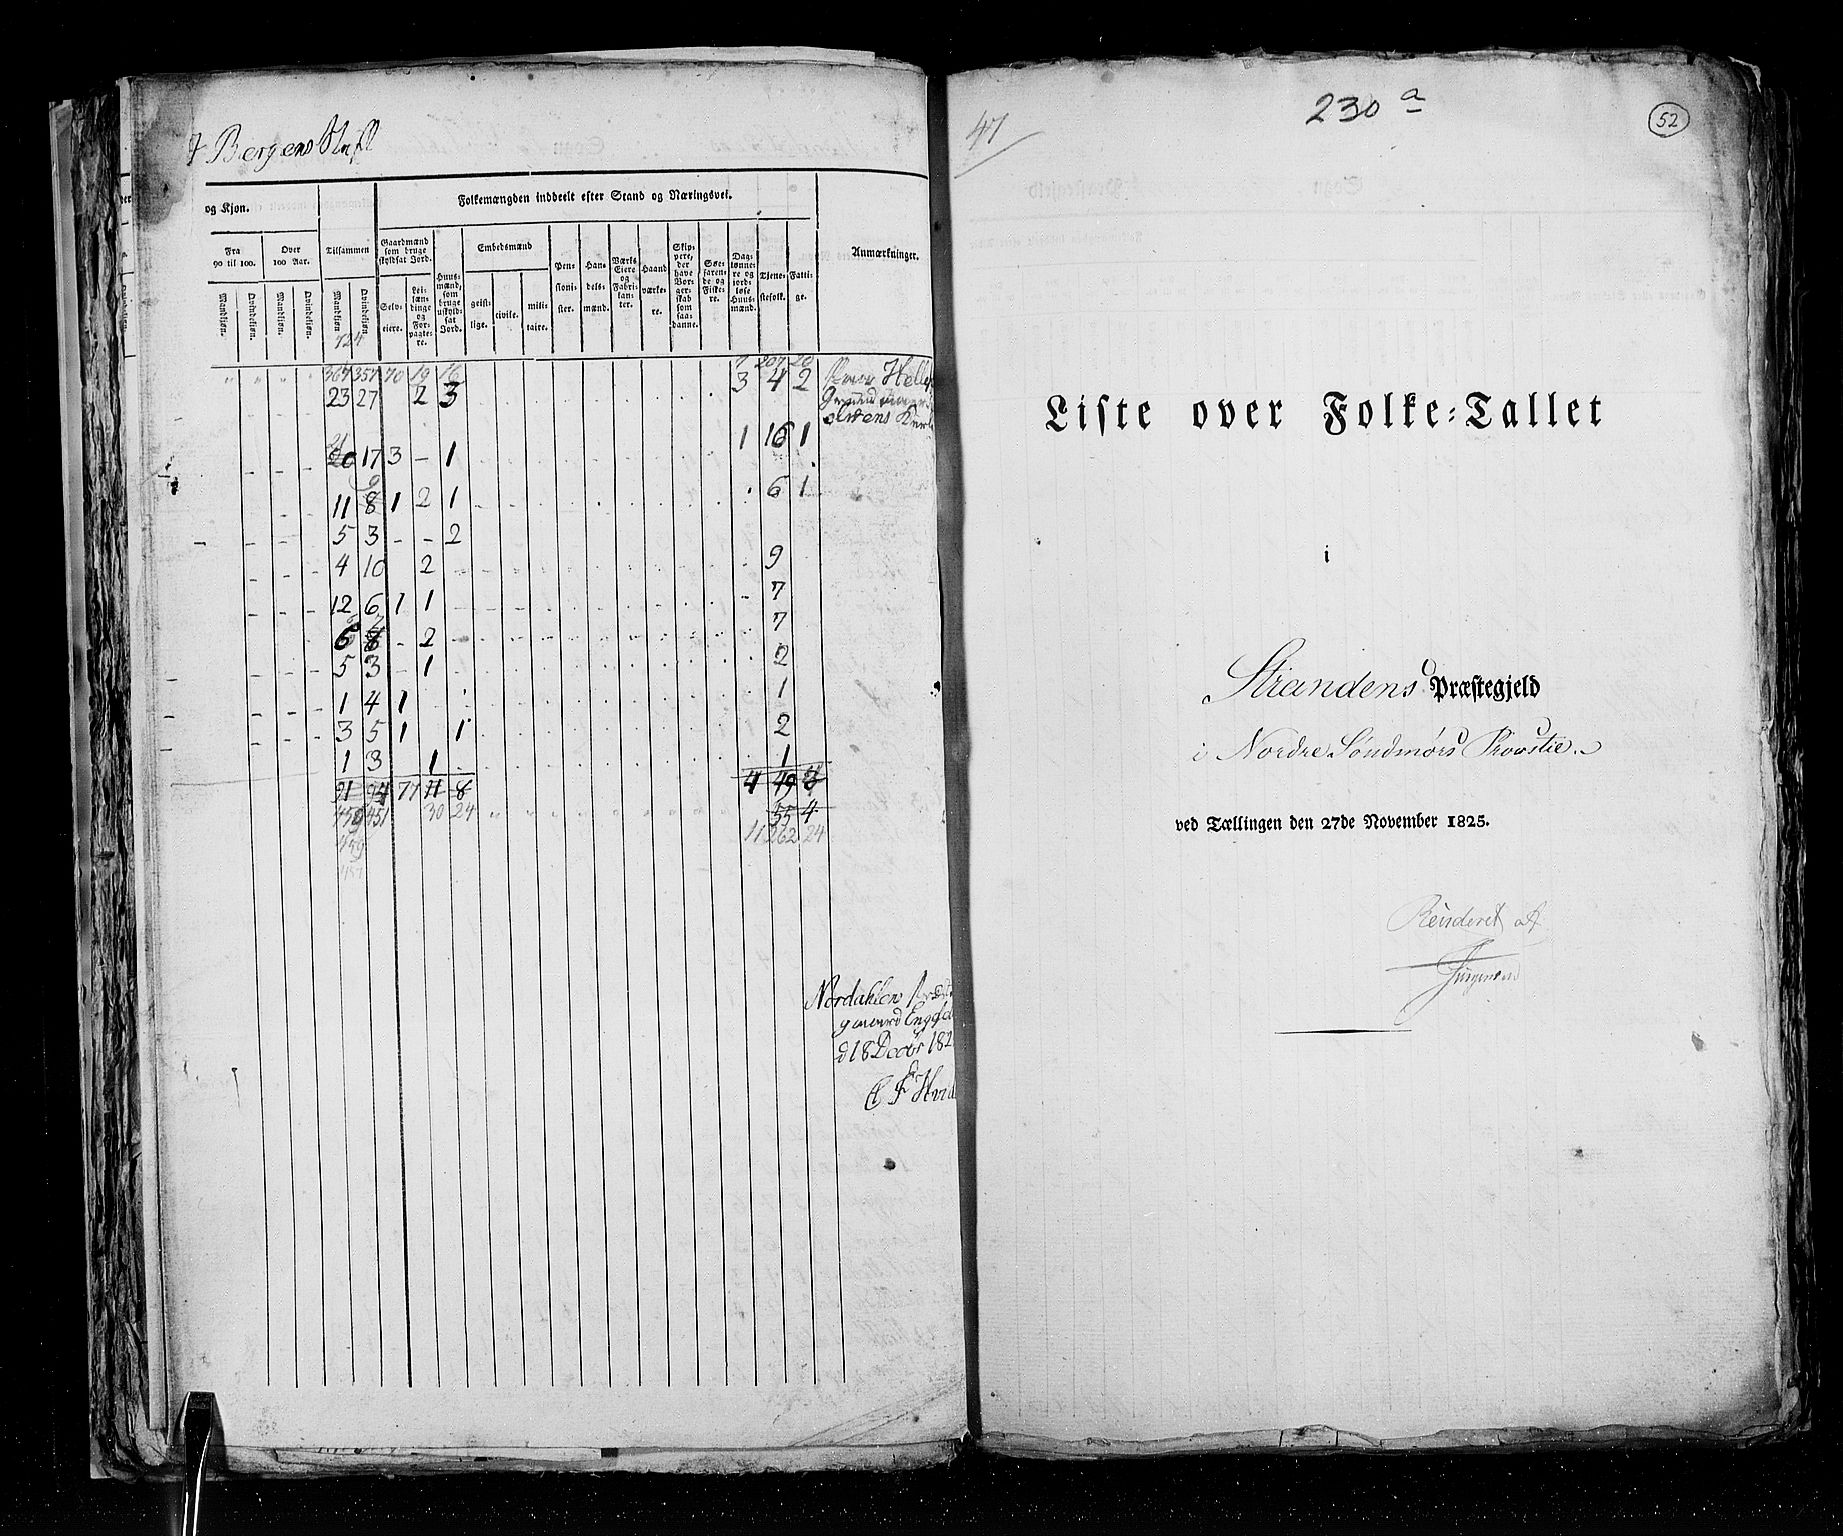 Bergens Stift
og Kjøn.
Folkemængden inddeelt efter Stand og Næringsvei.
Fra 90 til 100.
Over 100 Aar.
Tilsammen
Gaardmænd som bruge skyldsat Jord.
Huusmænd, som bruge uskyldsat Jord.
Embedsmænd
Pensionister.
Handelsmænd.
Værks Eiere og Fabrikanter.
Haandværkere.
Skippere, der have Borgerskab som saadanne.
Søefarende og Fiskere.
Dagtønnere og jordløse Huusmænd.
Tjenestefolk.
Fattige.
Anmærkninger.
Mandkjøn. Qvindekjøn. Mandkjøn. Qvindekjøn. Mandkjøn Qvindekjøn. Selveiere. Leilændinge og Forpagtere. geistlige. civile. militaire.
724
7 207 20
367 357 70 19 16 3 4 2
23 27 2 3
1 16 1
21
20 17 3 - 1
9
11 8 1 2 1 6 1
5 3 - - 2
4 10 2 9
12 6 1 1 7
6 8 - 2 7
5 3 - 1 2
1 4 1 1
3 5 1 1 2
1 3 1 1
91 94 77 11 8 4 49
459 451 30 24 55 4
11 262 24
459
457
Nordahlen
d 18 Decbr 182
47
230 a
52
Liste over Folke-Tallet
i
Strandens Præstegjeld
i Nordre Søndmørs Provstie
ved Tællingen den 27de November 1825.
Revideret af
Jürgensen